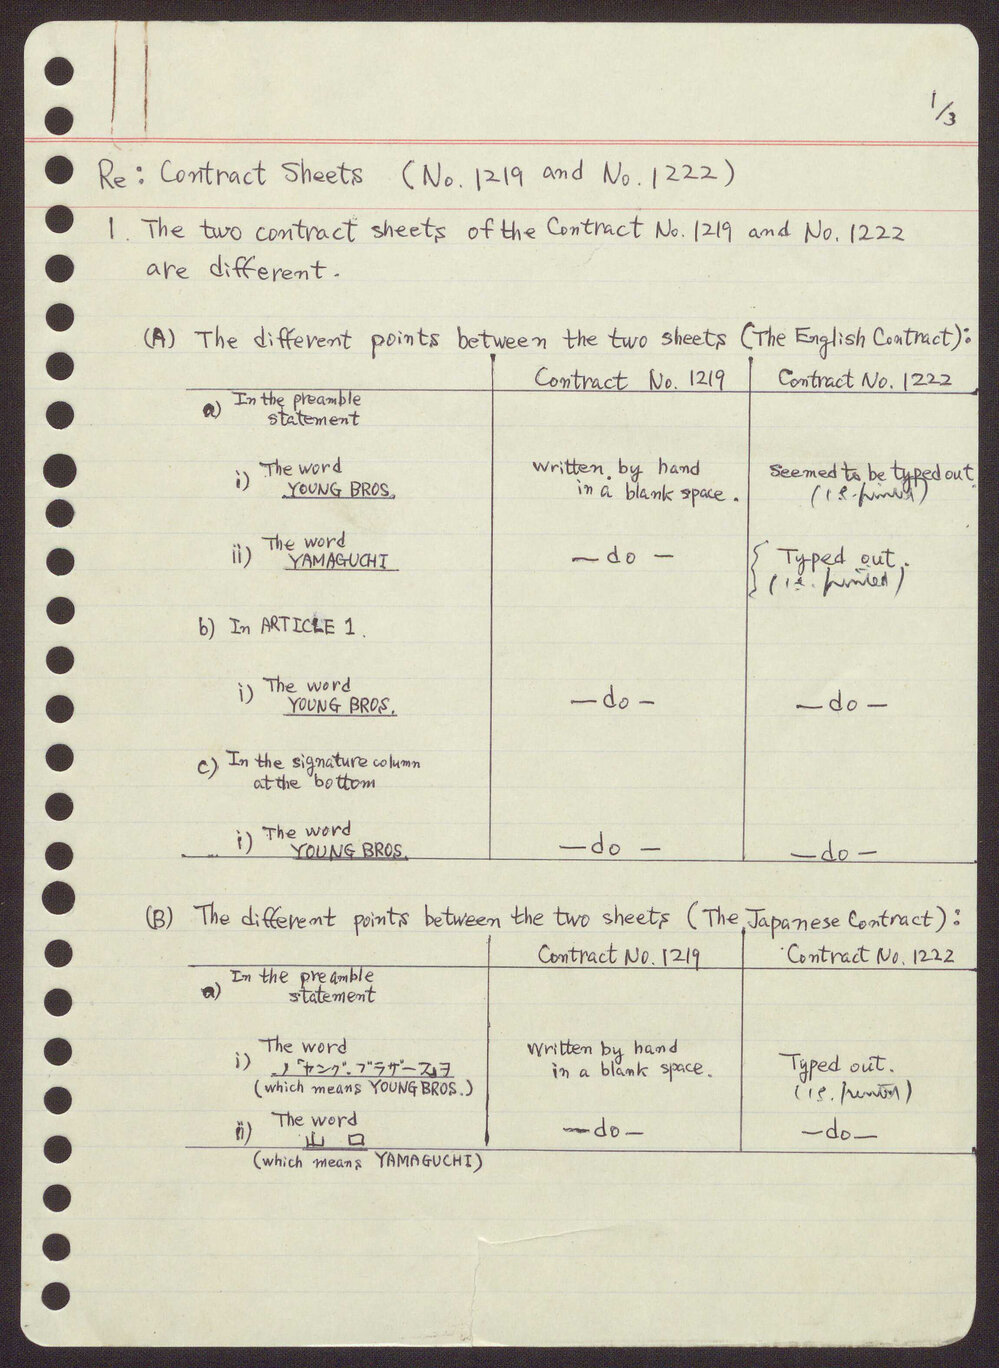 1/3
Re: Contract Sheets (No. 1219 and No. 1222)
1. The two contract sheets of the Contract No. 1219 and No. 1222
are different.
(A) The different points between the two sheets (The English Contract):
Contract No. 1219 Contract No. 1222
a) In the preamble
statement
i) The word
YOUNG BROS. written by hand
in a blank space. Seemed to be typed out
(i.e. printed)
ii) The word
YAMAGUCHI — do — Typed out.
(i.e. printed)
b) In ARTICLE 1.
i) The word
YOUNG BROS. — do — — do —
c) In the signature column
at the bottom
i) The word
YOUNG BROS. — do — — do —
(B) The different points between the two sheets (The Japanese Contract):
Contract No. 1219 Contract No. 1222
a) In the preamble
statement
i) The word
ヤング・ブラザース
(which means YOUNG BROS.) written by hand
in a blank space. Typed out.
(i.e. printed)
ii) The word
山 口 — do — — do —
(which means YAMAGUCHI)